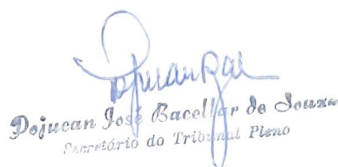 Dejucan José Bacellar de Souza
Secretário do Tribunal Pleno